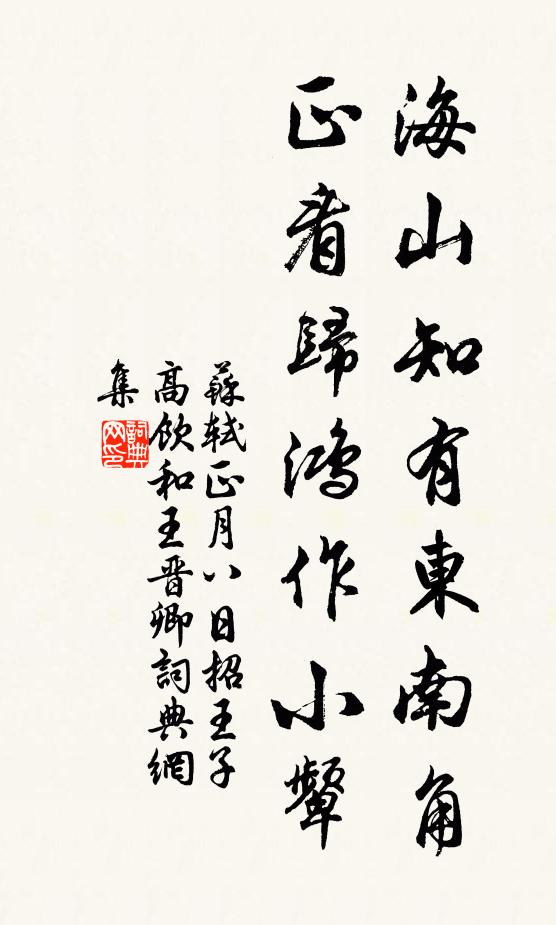 海山知有東南角
正看歸鴻作小顰
蘇軾正月八日招王子
高飲和王晉卿詞典網
集
詞典网印